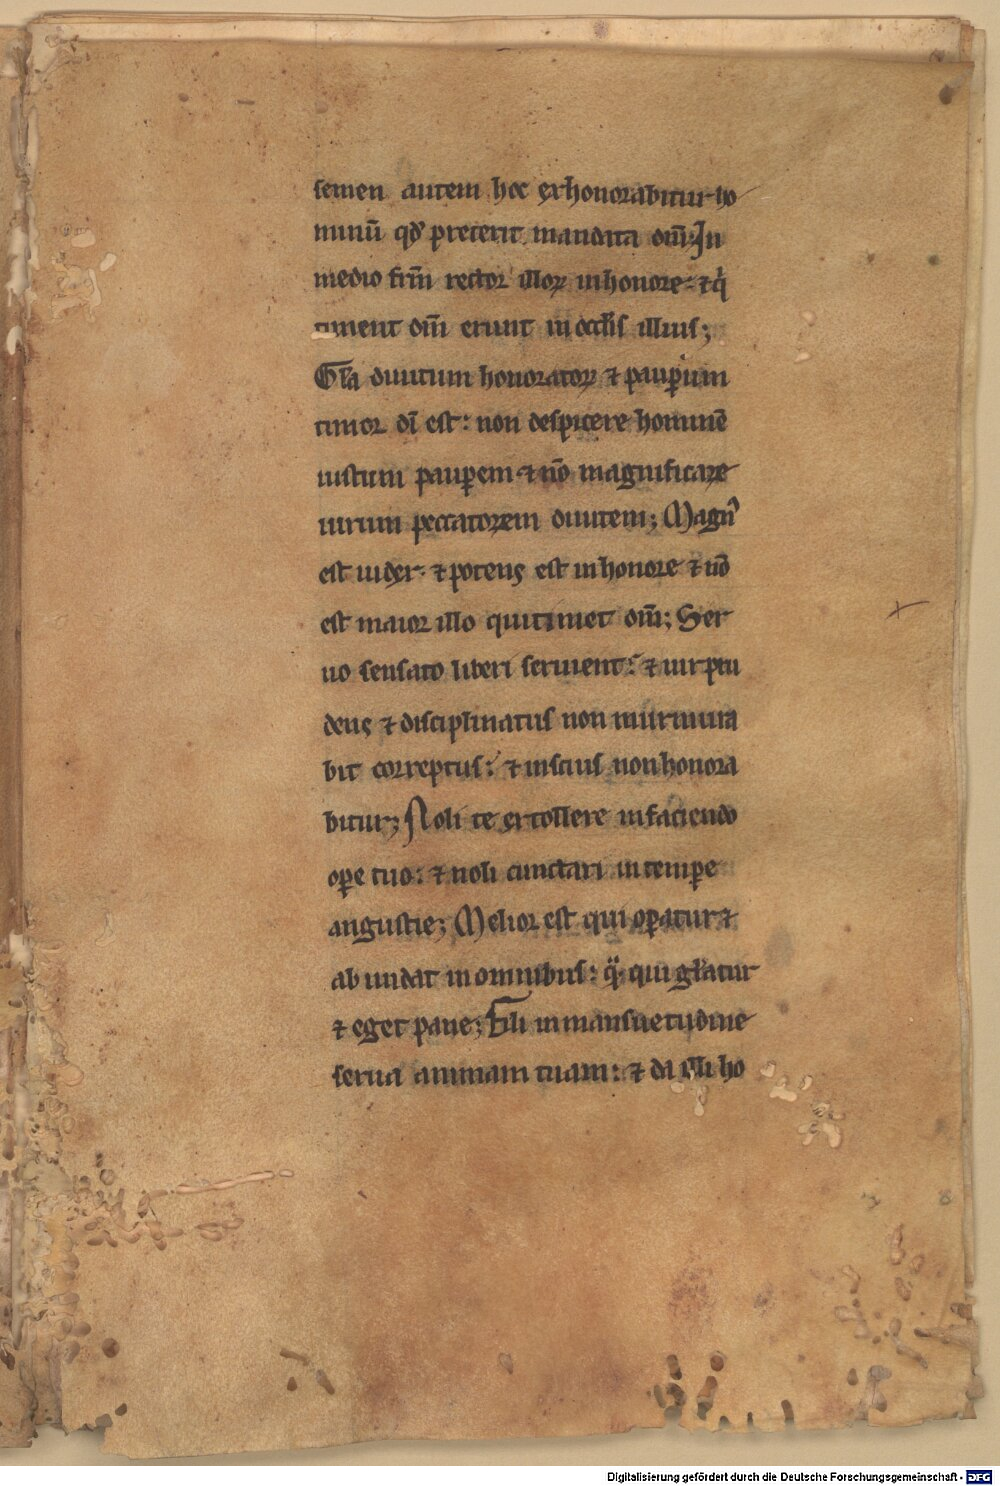 semen autem hoc exhonorabitur ho
minū qđ preterit mandata dn̄i; In
medio fr̄m rector illoꝝ in honore: ⁊ q̇
timent dn̄m erunt in occl̄is illius;
Gl̄a diuitum honoratoꝝ ⁊ paup̱um
timor dī est: non despicere hominē
iustum paup̱em ⁊ nō magnificare
uirum peccatorem diuitem; Magn᾽
est iudex ⁊ potens est in honore ⁊ nō
est maior illo qui timet dn̄m; Ser
uo sensato liberi seruient: ⁊ uir pru
dens ⁊ disciplinatus non murmura
bit correptus: ⁊ inscius non honora
bitur; Noli te extollere in faciendo
op̱e tuo: ⁊ noli cunctari in temp̱e
angustie; Melior est qui op̱atur ⁊
abundat in omnibus: qͣ̄ qui gl̄atur
⁊ eget pane; Fili in mansuetudine
serua animam tuam: ⁊ da illi ho
Digitalisierung gefördert durch die Deutsche Forschungsgemeinschaft - DFG